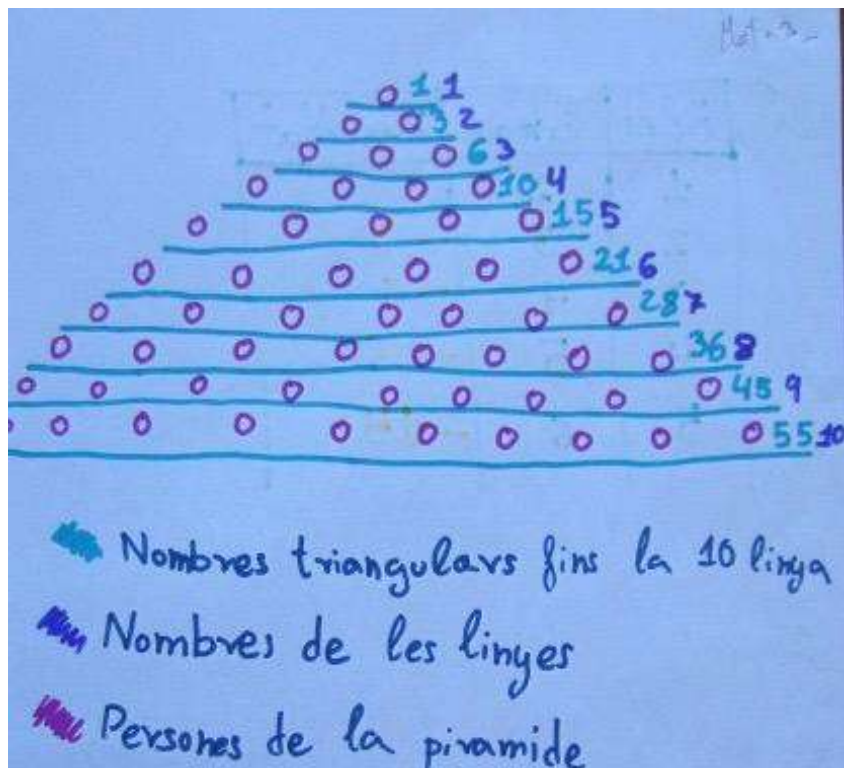 1 1
3 2
6 3
10 4
15 5
21 6
28 7
36 8
45 9
55 10
Nombres triangulars fins la 10 linya
Nombres de les linyes
Persones de la piramide